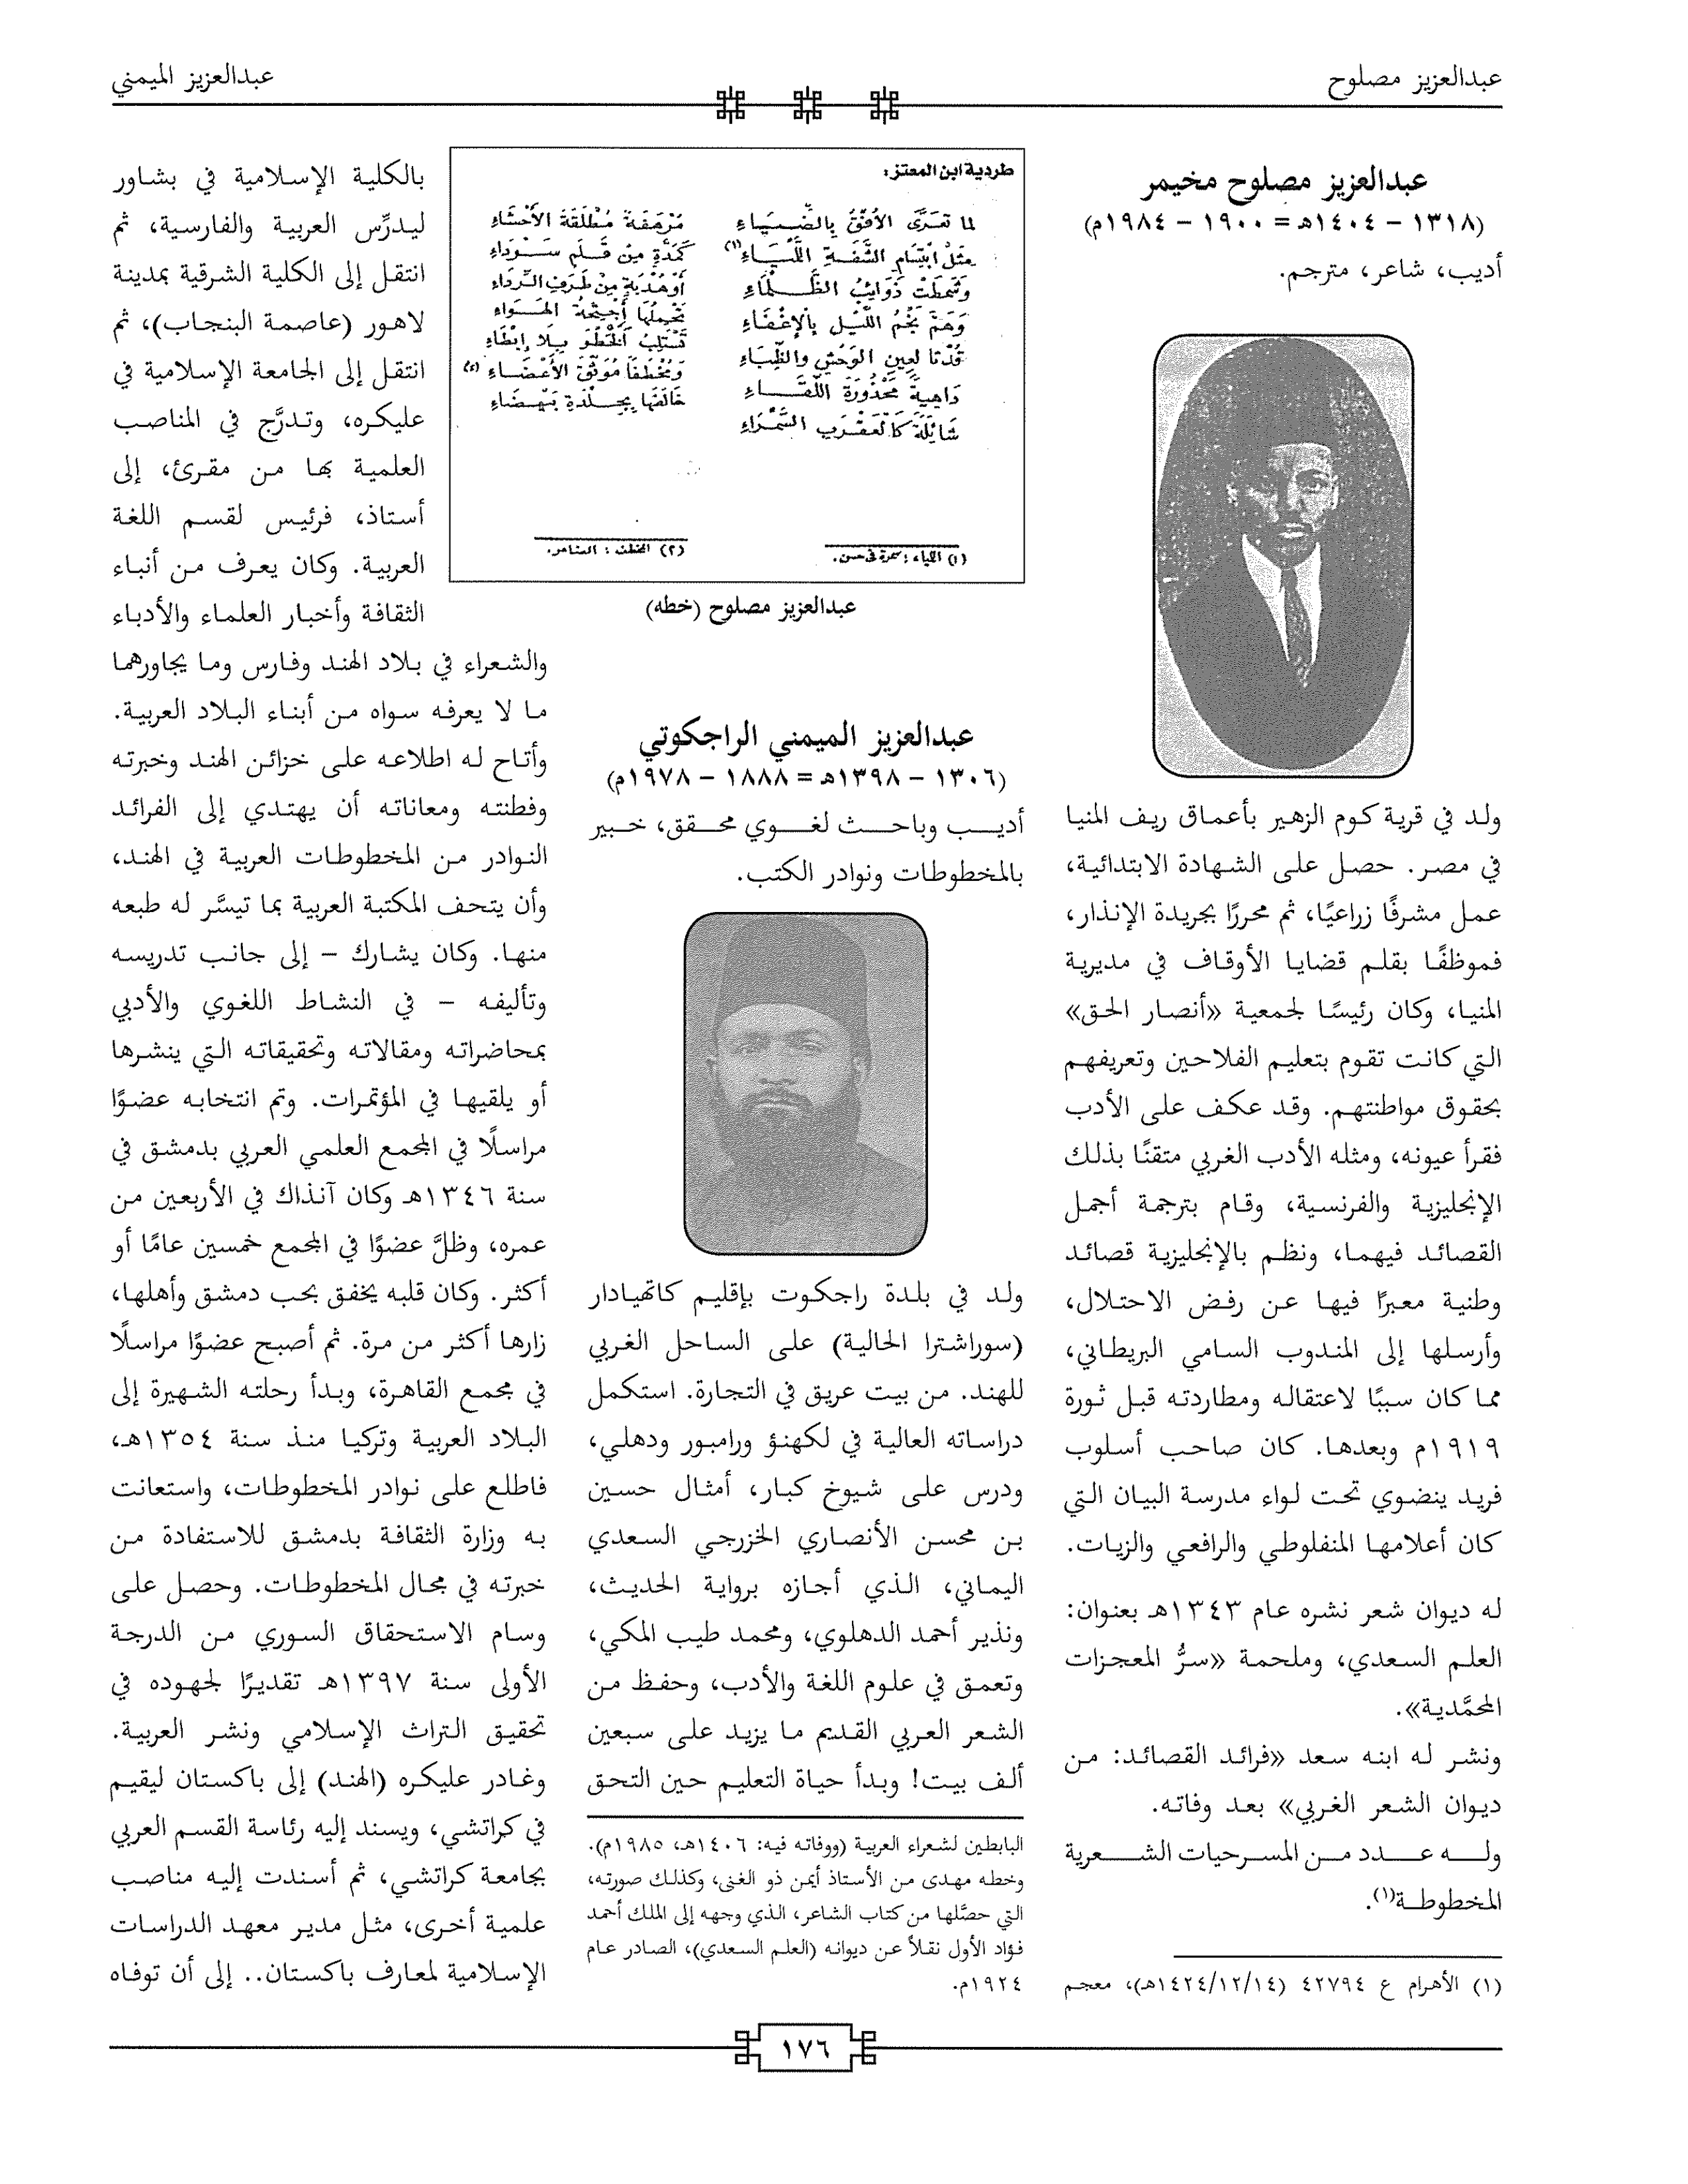 عبدالعزيز مصلوح
عبدالعزيز الميمني
عبدالعزيز مصلوح مخيمر
(١٣١٨ – ١٤٠٤هـ = ١٩٠٠ – ١٩٨٤م)
أديب، شاعر، مترجم.
ولد في قرية كوم الزهير بأعماق ريف المنيا
في مصر. حصل على الشهادة الابتدائية،
عمل مشرفًا زراعيًا، ثم محررًا بجريدة الإنذار،
فموظفًا بقلم قضايا الأوقاف في مديرية
المنيا، وكان رئيسًا لجمعية «أنصار الحق»
التي كانت تقوم بتعليم الفلاحين وتعريفهم
بحقوق مواطنتهم. وقد عكف على الأدب
فقرأ عيونه، ومثله الأدب الغربي متقنًا بذلك
الإنجليزية والفرنسية، وقام بترجمة أجمل
القصائد فيهما، ونظم بالإنجليزية قصائد
وطنية معبرًا فيها عن رفض الاحتلال،
وأرسلها إلى المندوب السامي البريطاني،
مما كان سببًا لاعتقاله ومطاردته قبل ثورة
١٩١٩م وبعدها. كان صاحب أسلوب
فريد ينضوي تحت لواء مدرسة البيان التي
كان أعلامها المنفلوطي والرافعي والزيات.
له ديوان شعر نشره عام ١٣٤٣هـ بعنوان:
العلم السعدي، وملحمة «سرُّ المعجزات
المحمَّدية».
ونشر له ابنه سعد «فرائد القصائد: من
ديوان الشعر الغربي» بعد وفاته.
وله عدد من المسرحيات الشعرية
المخطوطة(١).
(١) الأهرام ع ٤٢٧٩٤ (١٤٢٤/١٢/١٤هـ)، معجم
طردية ابن المعتز:
لما تعَرَّى الأُفُقُ بِالضِّيَاءِ
مِثْلُ ابْتِسَامِ الشَّفَةِ اللَّمْيَاءِ(١)
وَشَمِطَتْ ذَوَائِبُ الظَّلْمَاءِ
وَهَمَّ نَجْمُ اللَّيْلِ بِالإِغْفَاءِ
قُدْنَا لِعِينِ الوَحْشِ وَالظِّبَاءِ
دَاهِيَةً مَحْذُورَةَ اللِّقَاءِ
شَائِلَةً كَالعَقْرَبِ السَّمْرَاءِ
مُرْهَفَةً مُطْلَقَةَ الأَحْشَاءِ
كَمَدَّةٍ مِنْ قَلَمٍ سَوْدَاءِ
أَوْهُدْبَةٍ مِنْ طَرَفِ الرِّدَاءِ
تَحْمِلُهَا أَجْنِحَةُ الهَوَاءِ
تَسْتَلِبُ الخَطْوَ بِلَا إِبْطَاءِ
وَمُخْطَفًا مُوَثَّقَ الأَعْضَاءِ (٢)
خَالَفَهَا بِجِلْدَةٍ بَيْضَاءِ
(١) اللمياء: سمرة في حسن.
(٢) المخطف: الضامر.
عبدالعزيز مصلوح (خطه)
عبدالعزيز الميمني الراجكوتي
(١٣٠٦ – ١٣٩٨هـ = ١٨٨٨ – ١٩٧٨م)
أديب وباحث لغوي محقق، خبير
بالمخطوطات ونوادر الكتب.
ولد في بلدة راجكوت بإقليم كاتهيادار
(سوراشترا الحالية) على الساحل الغربي
للهند. من بيت عريق في التجارة. استكمل
دراساته العالية في لكهنؤ ورامبور ودهلي،
ودرس على شيوخ كبار، أمثال حسين
بن محسن الأنصاري الخزرجي السعدي
اليماني، الذي أجازه برواية الحديث،
ونذير أحمد الدهلوي، ومحمد طيب المكي،
وتعمق في علوم اللغة والأدب، وحفظ من
الشعر العربي القديم ما يزيد على سبعين
ألف بيت! وبدأ حياة التعليم حين التحق
البابطين لشعراء العربية (ووفاته فيه: ١٤٠٦هـ، ١٩٨٥م).
وخطه مهدى من الأستاذ أيمن ذو الغنى، وكذلك صورته،
التي حصَّلها من كتاب الشاعر، الذي وجهه إلى الملك أحمد
فؤاد الأول نقلاً عن ديوانه (العلم السعدي)، الصادر عام
١٩٢٤م.
بالكلية الإسلامية في بشاور
ليدرِّس العربية والفارسية، ثم
انتقل إلى الكلية الشرقية بمدينة
لاهور (عاصمة البنجاب)، ثم
انتقل إلى الجامعة الإسلامية في
عليكره، وتدرَّج في المناصب
العلمية بها من مقرئ، إلى
أستاذ، فرئيس لقسم اللغة
العربية. وكان يعرف من أنباء
الثقافة وأخبار العلماء والأدباء
والشعراء في بلاد الهند وفارس وما يجاورهما
ما لا يعرفه سواه من أبناء البلاد العربية.
وأتاح له اطلاعه على خزائن الهند وخبرته
وفطنته ومعاناته أن يهتدي إلى الفرائد
النوادر من المخطوطات العربية في الهند،
وأن يتحف المكتبة العربية بما تيسَّر له طبعه
منها. وكان يشارك – إلى جانب تدريسه
وتأليفه – في النشاط اللغوي والأدبي
بمحاضراته ومقالاته وتحقيقاته التي ينشرها
أو يلقيها في المؤتمرات. وتم انتخابه عضوًا
مراسلًا في المجمع العلمي العربي بدمشق في
سنة ١٣٤٦هـ وكان آنذاك في الأربعين من
عمره، وظلَّ عضوًا في المجمع خمسين عامًا أو
أكثر. وكان قلبه يخفق بحب دمشق وأهلها،
زارها أكثر من مرة. ثم أصبح عضوًا مراسلًا
في مجمع القاهرة، وبدأ رحلته الشهيرة إلى
البلاد العربية وتركيا منذ سنة ١٣٥٤هـ،
فاطلع على نوادر المخطوطات، واستعانت
به وزارة الثقافة بدمشق للاستفادة من
خبرته في مجال المخطوطات. وحصل على
وسام الاستحقاق السوري من الدرجة
الأولى سنة ١٣٩٧هـ تقديرًا لجهوده في
تحقيق التراث الإسلامي ونشر العربية.
وغادر عليكره (الهند) إلى باكستان ليقيم
في كراتشي، ويسند إليه رئاسة القسم العربي
بجامعة كراتشي، ثم أسندت إليه مناصب
علمية أخرى، مثل مدير معهد الدراسات
الإسلامية لمعارف باكستان.. إلى أن توفاه
١٧٦